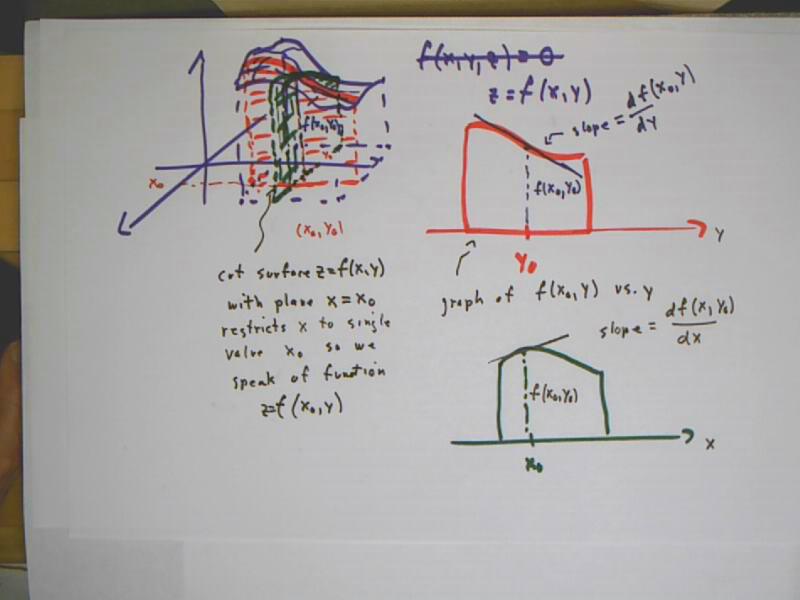 f(x,y,z) = 0
z = f(x,y)
slope = df(x₀,y)/dy
f(x₀,y₀)
y₀
x₀
(x₀,y₀)
f(x₀,y₀)
y₀
y
cut surface z=f(x,y)
with plane x=x₀
restricts x to single
value x₀ so we
speak of function
z=f(x₀,y)
graph of f(x₀,y) vs. y
slope = df(x,y₀)/dx
f(x₀,y₀)
x₀
x